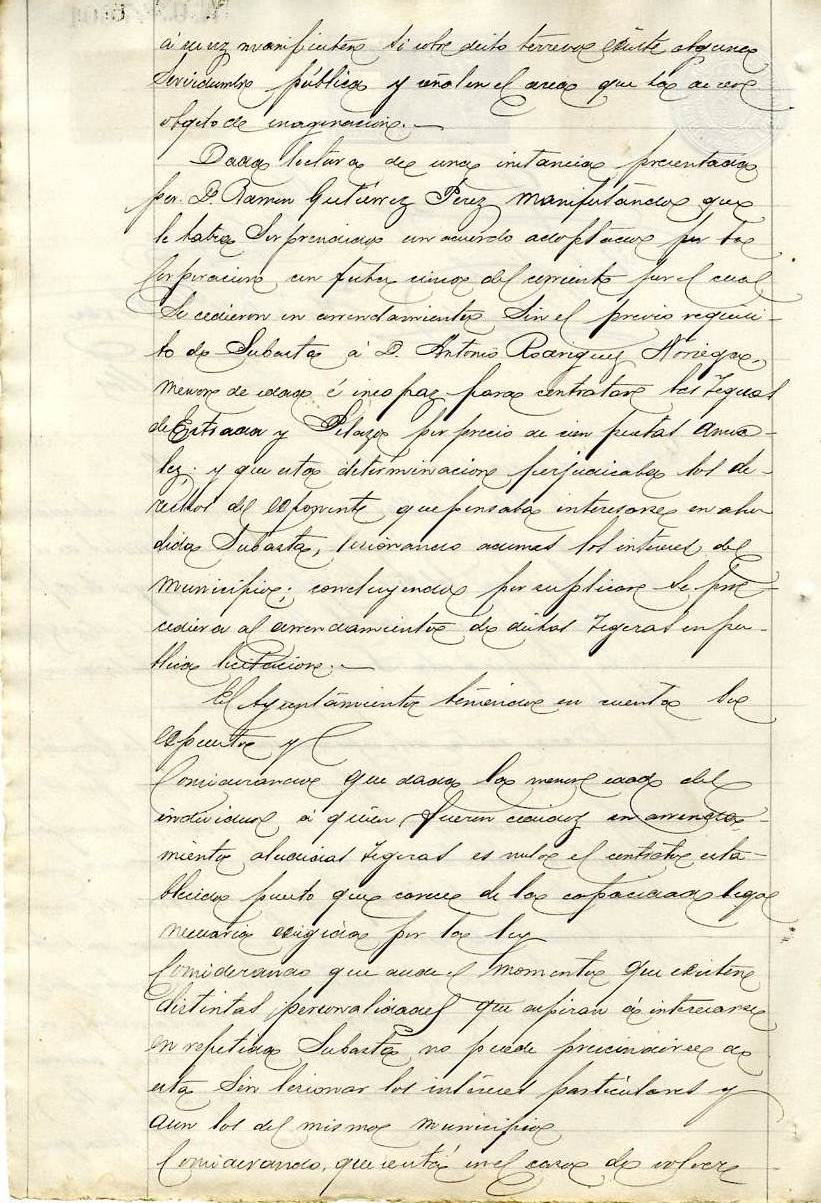 á su vez manifiesten si sobre dicho terreno existe alguna
servidumbre pública y señalen el area que ha de ser
objeto de enagenacion.—
Dada lectura de una instancia presentada
por D. Ramon Gutiérrez Pérez manifestando que
le habia sorprendido un acuerdo adoptado por la
Corporacion en fecha cinco del corriente por el cual
se cedieron en arrendamiento sin el previo requisi-
to de Subasta á D. Antonio Rodriguez Noriega,
menor de edad é incapaz para contratar las Tegeras
de Estrada y Pelazo por precio de cien pesetas anua-
les: y que esta determinacion perjudicaba los de-
rechos del exponente que pensaba interesarse en alu
dida Subasta, lesionando ademas los intereses del
municipio; concluyendo por suplicar se pro-
cediera al arrendamiento de dichas Tegeras en pu-
blica licitacion.—
El Ayuntamiento teniendo en cuenta lo
expuesto y
Considerando que dada la menor edad del
individuo á quien fueron cedidas en arrenda-
miento aludidas Tegeras es nulo el contrato esta-
blecido puesto que carece de la capacidad legal
necesaria exigida por la ley
Considerando que desde el momento que existen
distintas personalidades que aspiran á interesarse
en repetida Subasta no puede prescindirse de
esta sin lesionar los intereses particulares y
aun los del mismo municipio
Considerando, que está en el caso de volver